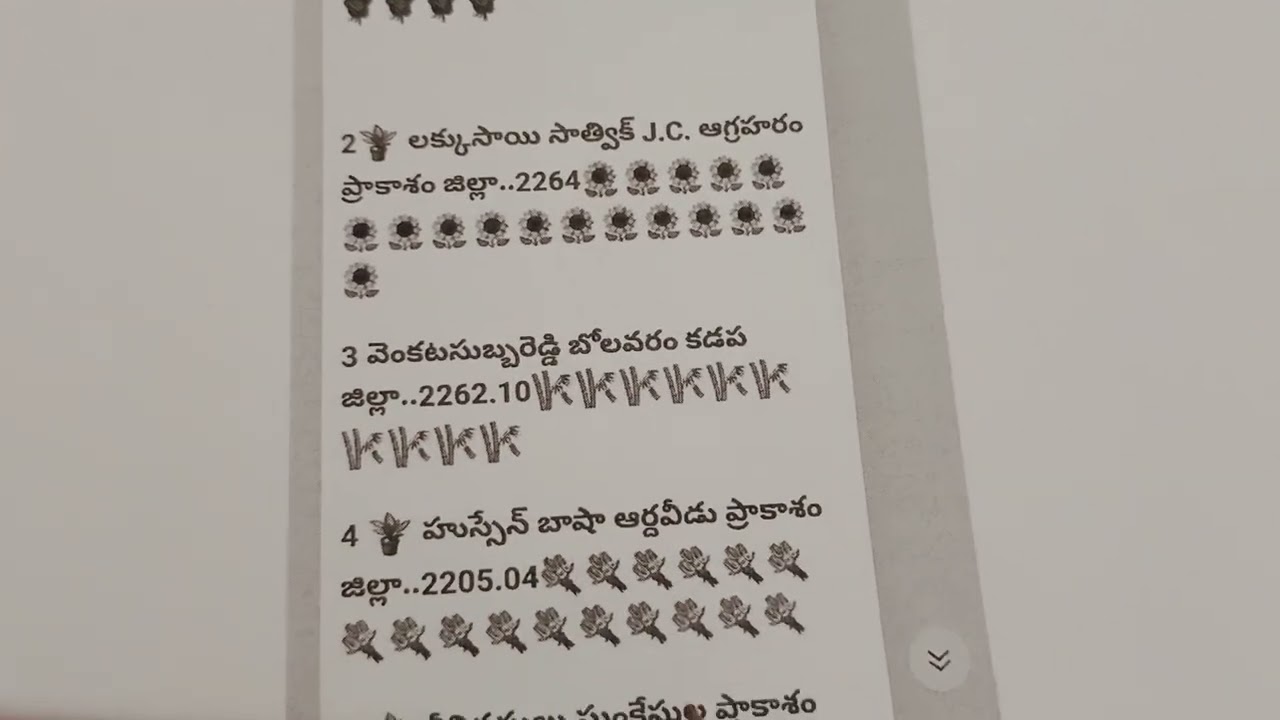 2🪴 లక్కుసాయి సాత్విక్ J.C. ఆగ్రహారం
ప్రాకాశం జిల్లా..2264🌼🌼🌼🌼🌼
🌼🌼🌼🌼🌼🌼🌼🌼🌼🌼🌼
🌼
3 వెంకటసుబ్బరెడ్డి బోలవరం కడప
జిల్లా..2262.10🎋🎋🎋🎋🎋🎋
🎋🎋🎋🎋
4 🪴 హుస్సేన్ బాషా ఆర్దవీడు ప్రాకాశం
జిల్లా..2205.04💐💐💐💐💐💐
💐💐💐💐💐💐💐💐💐💐
ప్రాకాశం